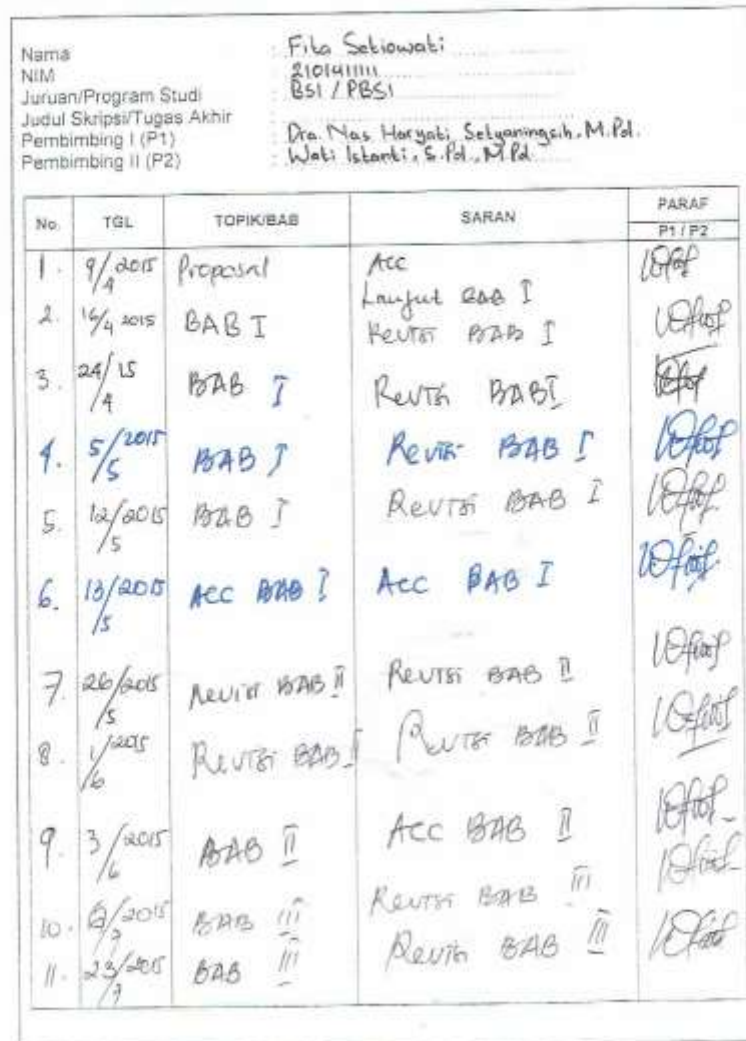 Nama : Fita Setiowati
NIM : 2101411111
Jurusan/Program Studi : BSI / PBSI
Judul Skripsi/Tugas Akhir :
Pembimbing I (P1) : Dra. Nas Haryati Setyaningsih, M.Pd.
Pembimbing II (P2) : Wati Istanti, S.Pd., M.Pd.
No. TGL TOPIK/BAB SARAN PARAF
P1 / P2
1. 9/4 2015 Proposal Acc
Lanjut BAB I
2. 16/4 2015 BAB I Revisi BAB I
3. 24/4 15 BAB I Revisi BAB I
4. 5/5 2015 BAB I Revisi BAB I
5. 12/5 2015 BAB I Revisi BAB I
6. 13/5 2015 Acc BAB I Acc BAB I
7. 26/5 2015 Revisi BAB II Revisi BAB II
8. 1/6 2015 Revisi BAB II Revisi BAB II
9. 3/6 2015 BAB II Acc BAB II
10. 2015 BAB III Revisi BAB III
11. 23/7 2015 BAB III Revisi BAB III